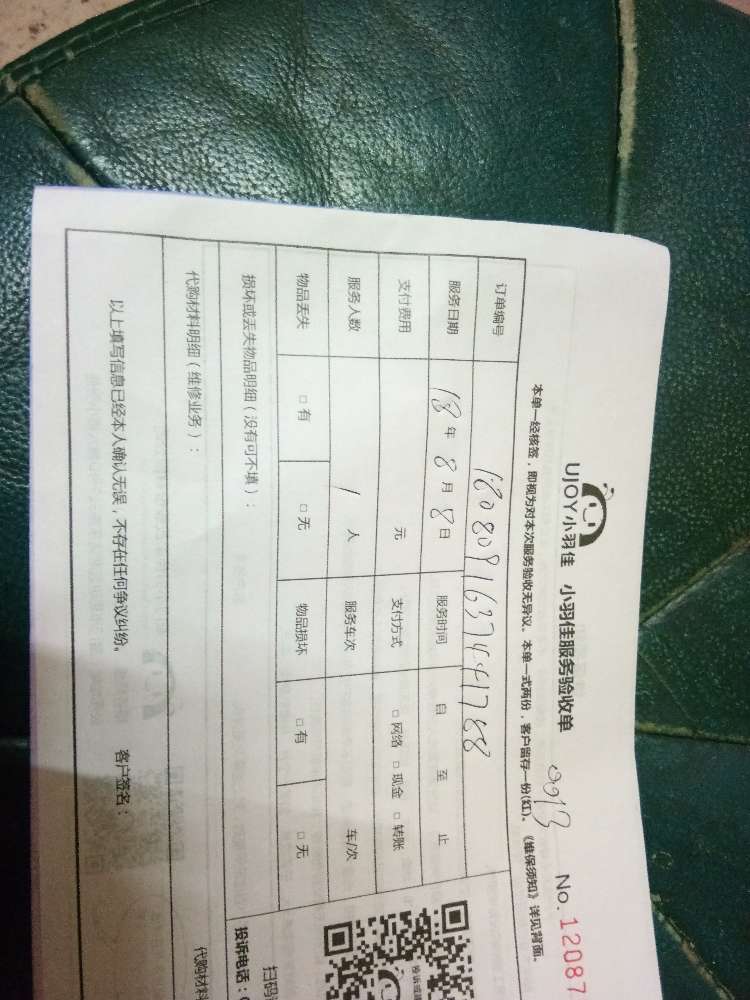 UJOY小羽佳 小羽佳服务验收单 No. 12087
本单一经核签，即视为对本次服务验收无异议。本单一式两份，客户留存一份(红)。《维保须知》详见背面。
订单编号
服务日期 18 年 8 月 8 日 服务时间 自 至 止
支付费用 元 支付方式 □ 网络 □ 现金 □ 转账
服务人数 1 人 服务车次 车/次
物品丢失 □ 有 □ 无 物品损坏 □ 有 □ 无
损坏或丢失物品明细（没有可不填）：
代购材料明细（维修业务）：
以上填写信息已经本人确认无误，不存在任何争议纠纷。 客户签名：
扫码
投诉电话：
代购材料